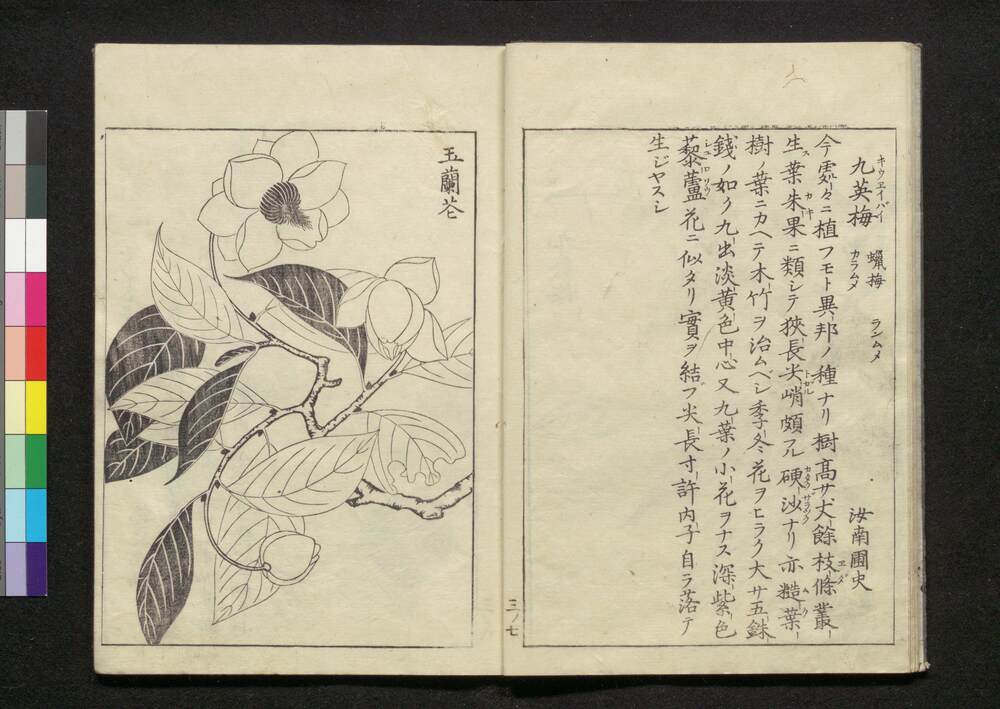 九英梅 蠟梅 汝南圃史
キウエイバイ カラムメ ランムメ
今處々ニ植フモト異邦ノ種ナリ樹髙サ丈餘枝條叢
エダ
生葉朱果ニ類シテ狹長尖峭頗フル硬沙ナリ亦糙葉
ス カキ トガル カタクサラツク ムク
樹ノ葉ニカヘテ木竹ヲ治ムベシ季冬花ヲヒラク大サ五銖
錢ノ如ク九出淡黄色中心又九葉ノ小花ヲナス深紫色
藜蘆花ニ似タリ實ヲ結ブ尖長寸許内子自ラ落テ
シユロサウ
生ジヤスシ
玉蘭花
三ノ七